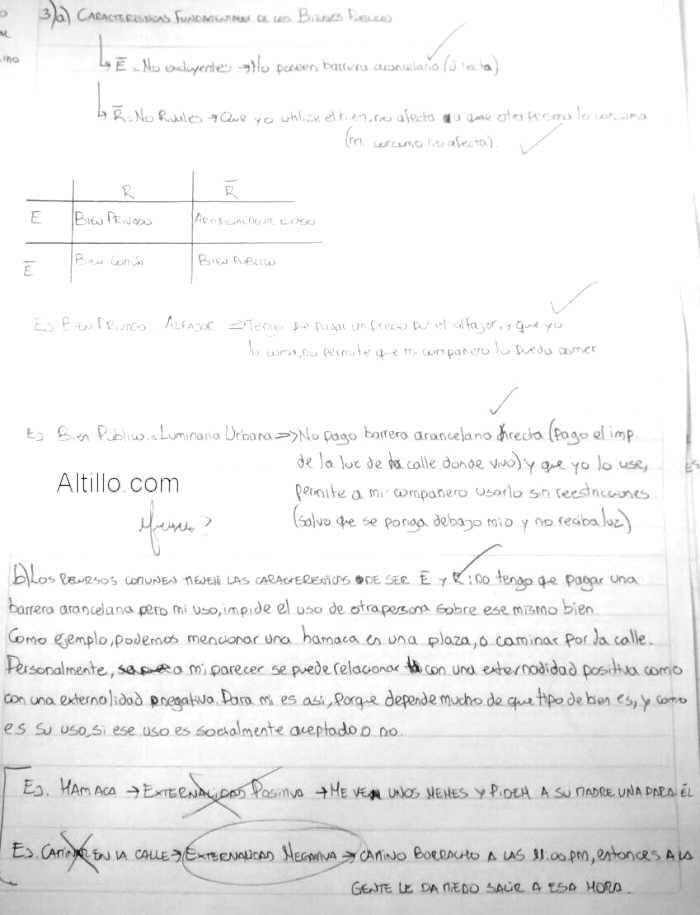 3)a) CARACTERISTICAS FUNDAMENTALES DE LOS BIENES PUBLICOS
↳ E̅ = No excluyentes → No poseen barrera arancelaria (directa)
↳ R̅ = No Rivales → Que yo utilize el bien, no afecta a que otra persona lo consuma
(mi consumo no afecta).
R R̅
E BIEN PRIVADO
E̅ BIEN COMÚN BIEN PUBLICO
Ej BIEN PRIVADO ALFAJOR ⇒ Tengo que pagar un precio por el alfajor, y que yo
lo coma, no permite que mi compañero lo pueda comer
Ej Bien Publico = Luminaria Urbana ⇒ No pago barrera arancelaria directa (Pago el imp
de la luz de la calle donde vivo) y que yo lo use,
permite a mi compañero usarlo sin reestricciones
(salvo que se ponga debajo mio y no reciba luz)
Altillo.com
b) LOS RECURSOS COMUNES TIENEN LAS CARACTERISTICAS DE SER E̅ y R: no tengo que pagar una
barrera arancelaria pero mi uso, impide el uso de otra persona sobre ese mismo bien
Como ejemplo, podemos mencionar una hamaca en una plaza, o caminar por la calle.
Personalmente, a mi parecer se puede relacionar con una externalidad positiva como
con una externalidad negativa. Para mi es asi, porque depende mucho de que tipo de bien es, y como
es su uso, si ese uso es socialmente aceptado o no.
Ej. HAMACA → EXTERNALIDAD POSITIVA → ME VEN UNOS NENES Y PIDEN A SU MADRE UNA PARA ÉL
Ej. CAMINAR EN LA CALLE → EXTERNALIDAD NEGATIVA → CAMINO BORRACHO A LAS 11:00 PM, entonces A LA
GENTE LE DA MIEDO SALIR A ESA HORA.